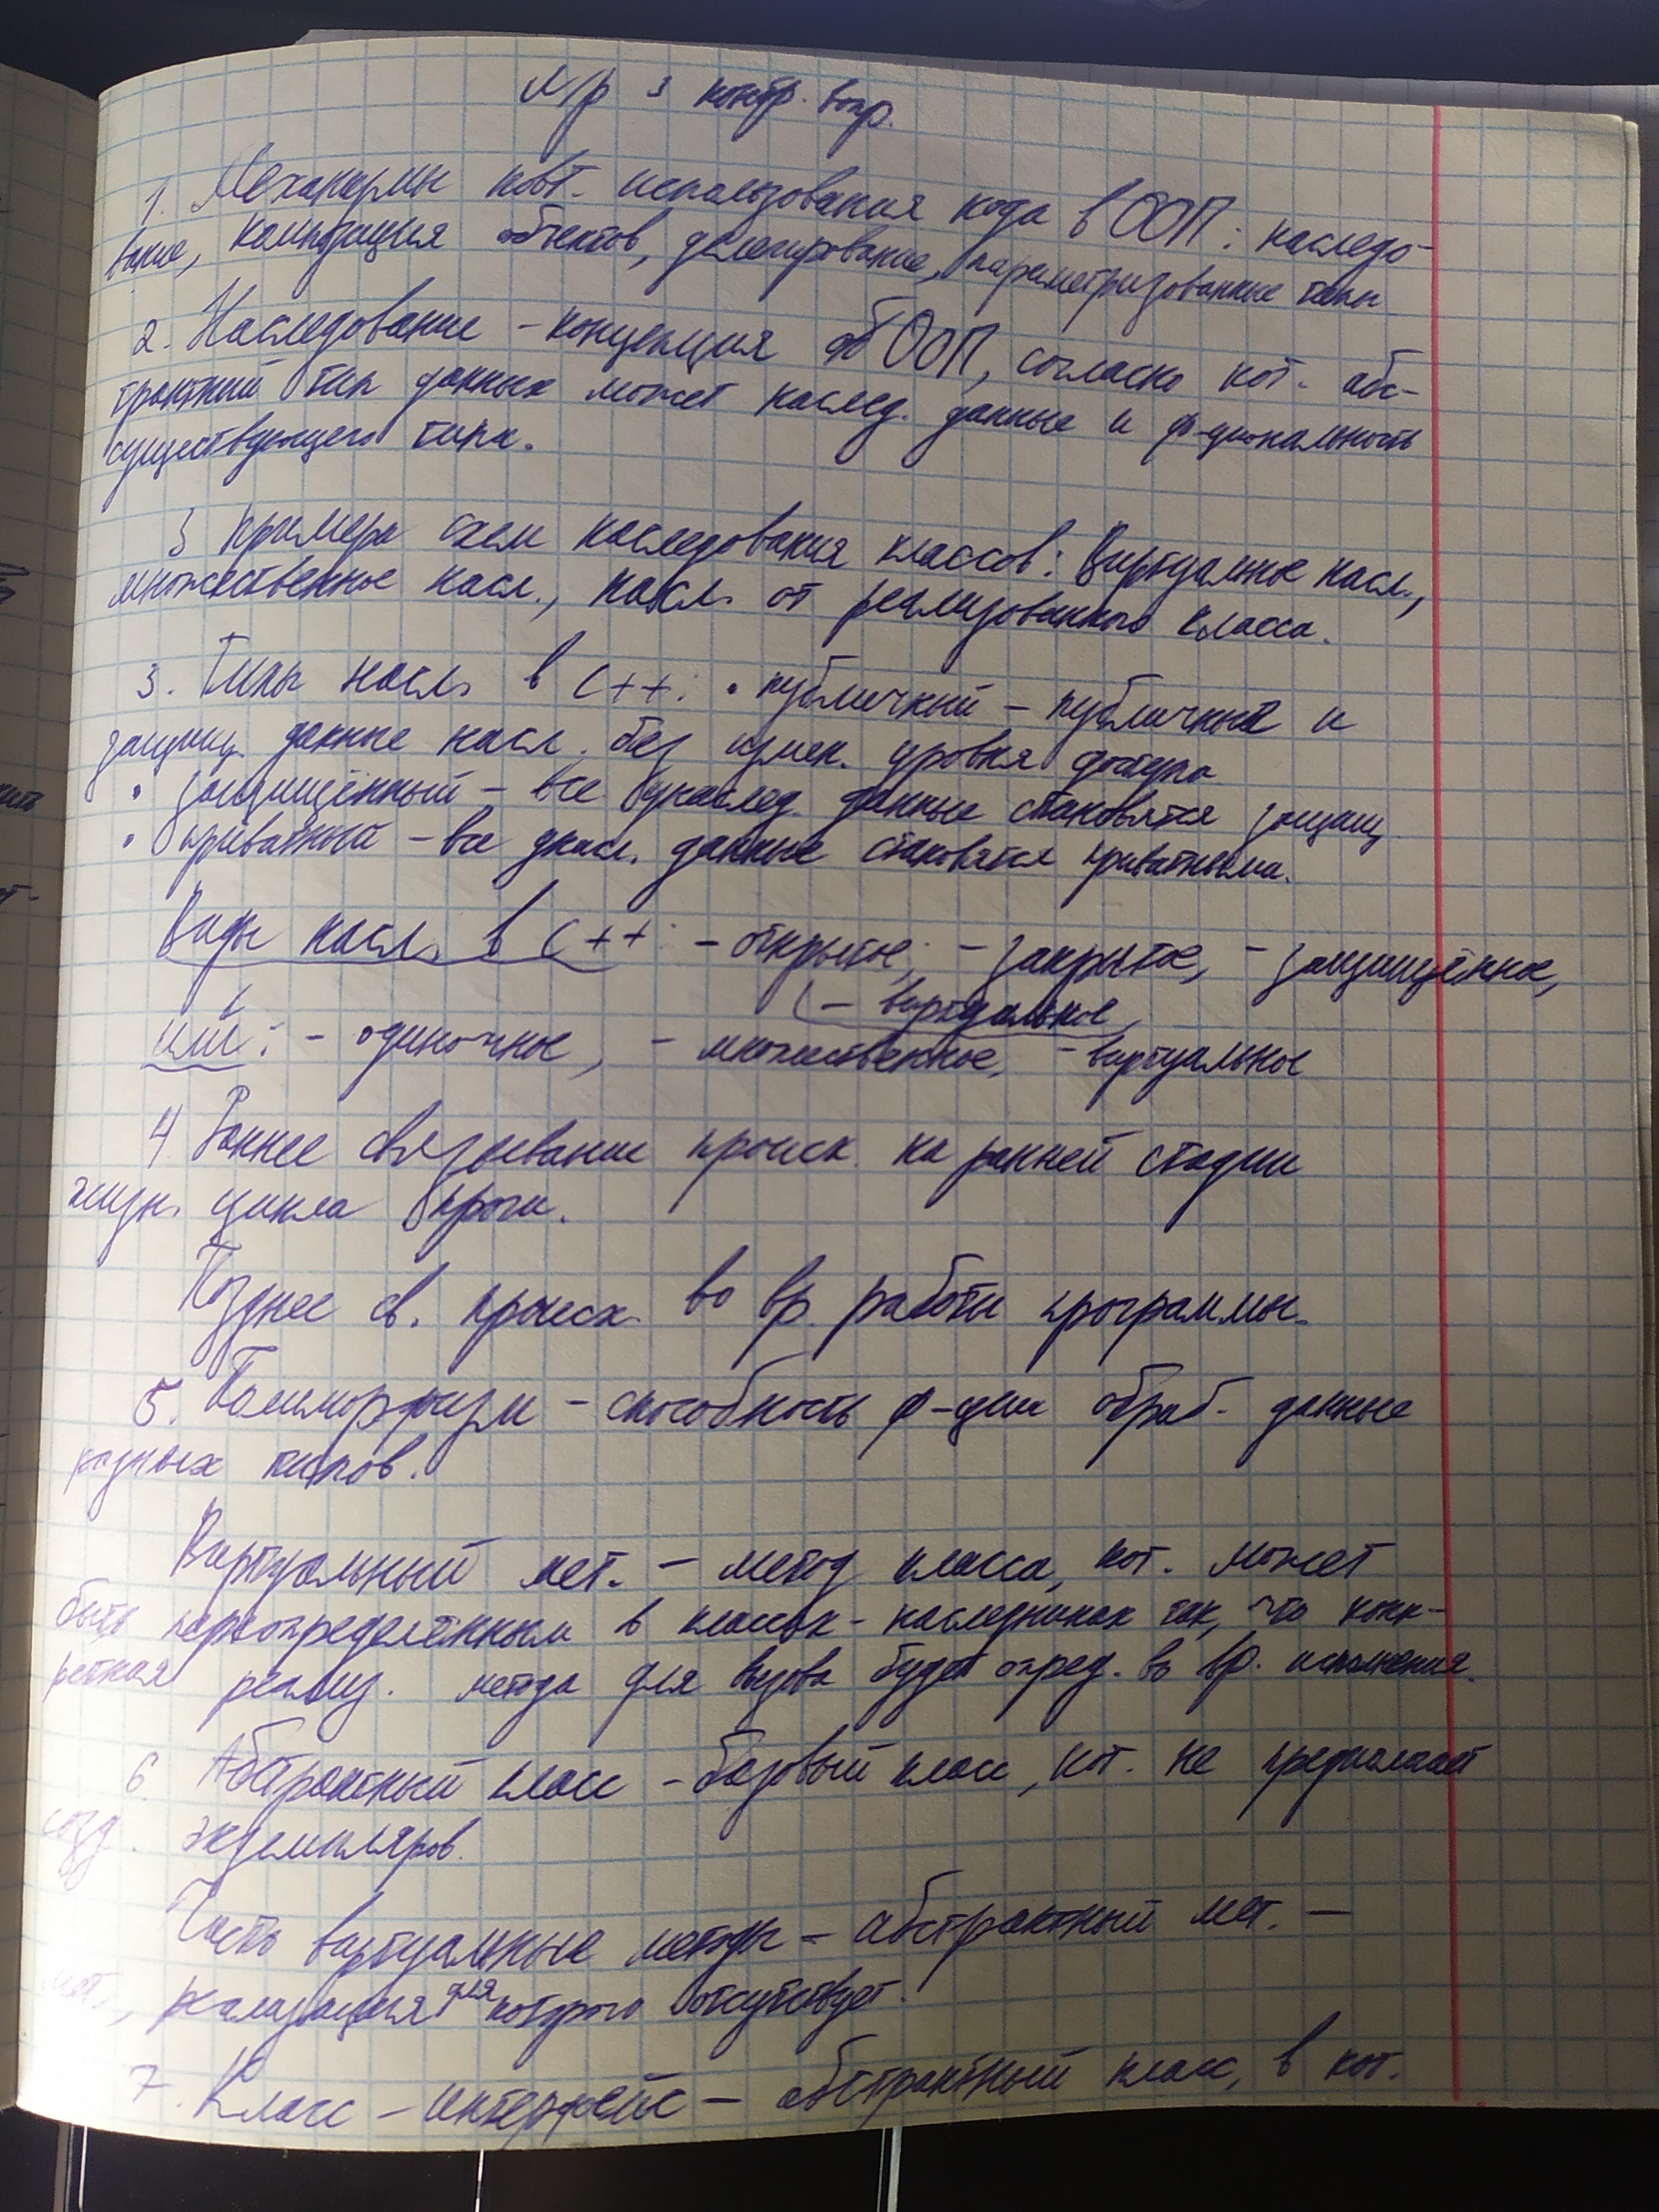 л/р 3 контр. вопр.
1. Механизмы повт. использования кода в ООП: наследо-
вание, композиция объектов, делегирование, параметризованные типы
2. Наследование – концепция об ООП, согласно кот. абс-
трактный тип данных может наслед. данные и ф-циональность
существующего типа.
3 примера схем наследования классов: Виртуальное насл.,
множественное насл., насл. от реализованного класса.
3. Типы насл. в C++: • публичный – публичные и
защищ. данные насл. без измен. уровня доступа
• защищённый – все унаслед. данные становятся защищ
• приватный – все унасл. данные становятся приватными.
Виды насл. в C++: – открытое, – закрытое, – защищённое,
– виртуальное,
или: – одиночное, – множественное, – виртуальное
4 Раннее связывание происх. на ранней стадии
жизн. цикла проги.
Позднее св. происх. во вр. работы программы.
5. Полиморфизм – способность ф-ции обраб. данные
разных типов.
Виртуальный мет. – метод класса, кот. может
быть переопределённым в классах-наследниках так, что конк-
ретная реализ. метода для вызова будет опред. во вр. исполнения.
6. Абстрактный класс – базовый класс, кот. не предполагает
созд. экземпляров.
виртуальные методы – абстрактный мет. –
мет., реализация для которого отсутствует.
7. Класс-интерфейс – абстрактный класс, в кот.